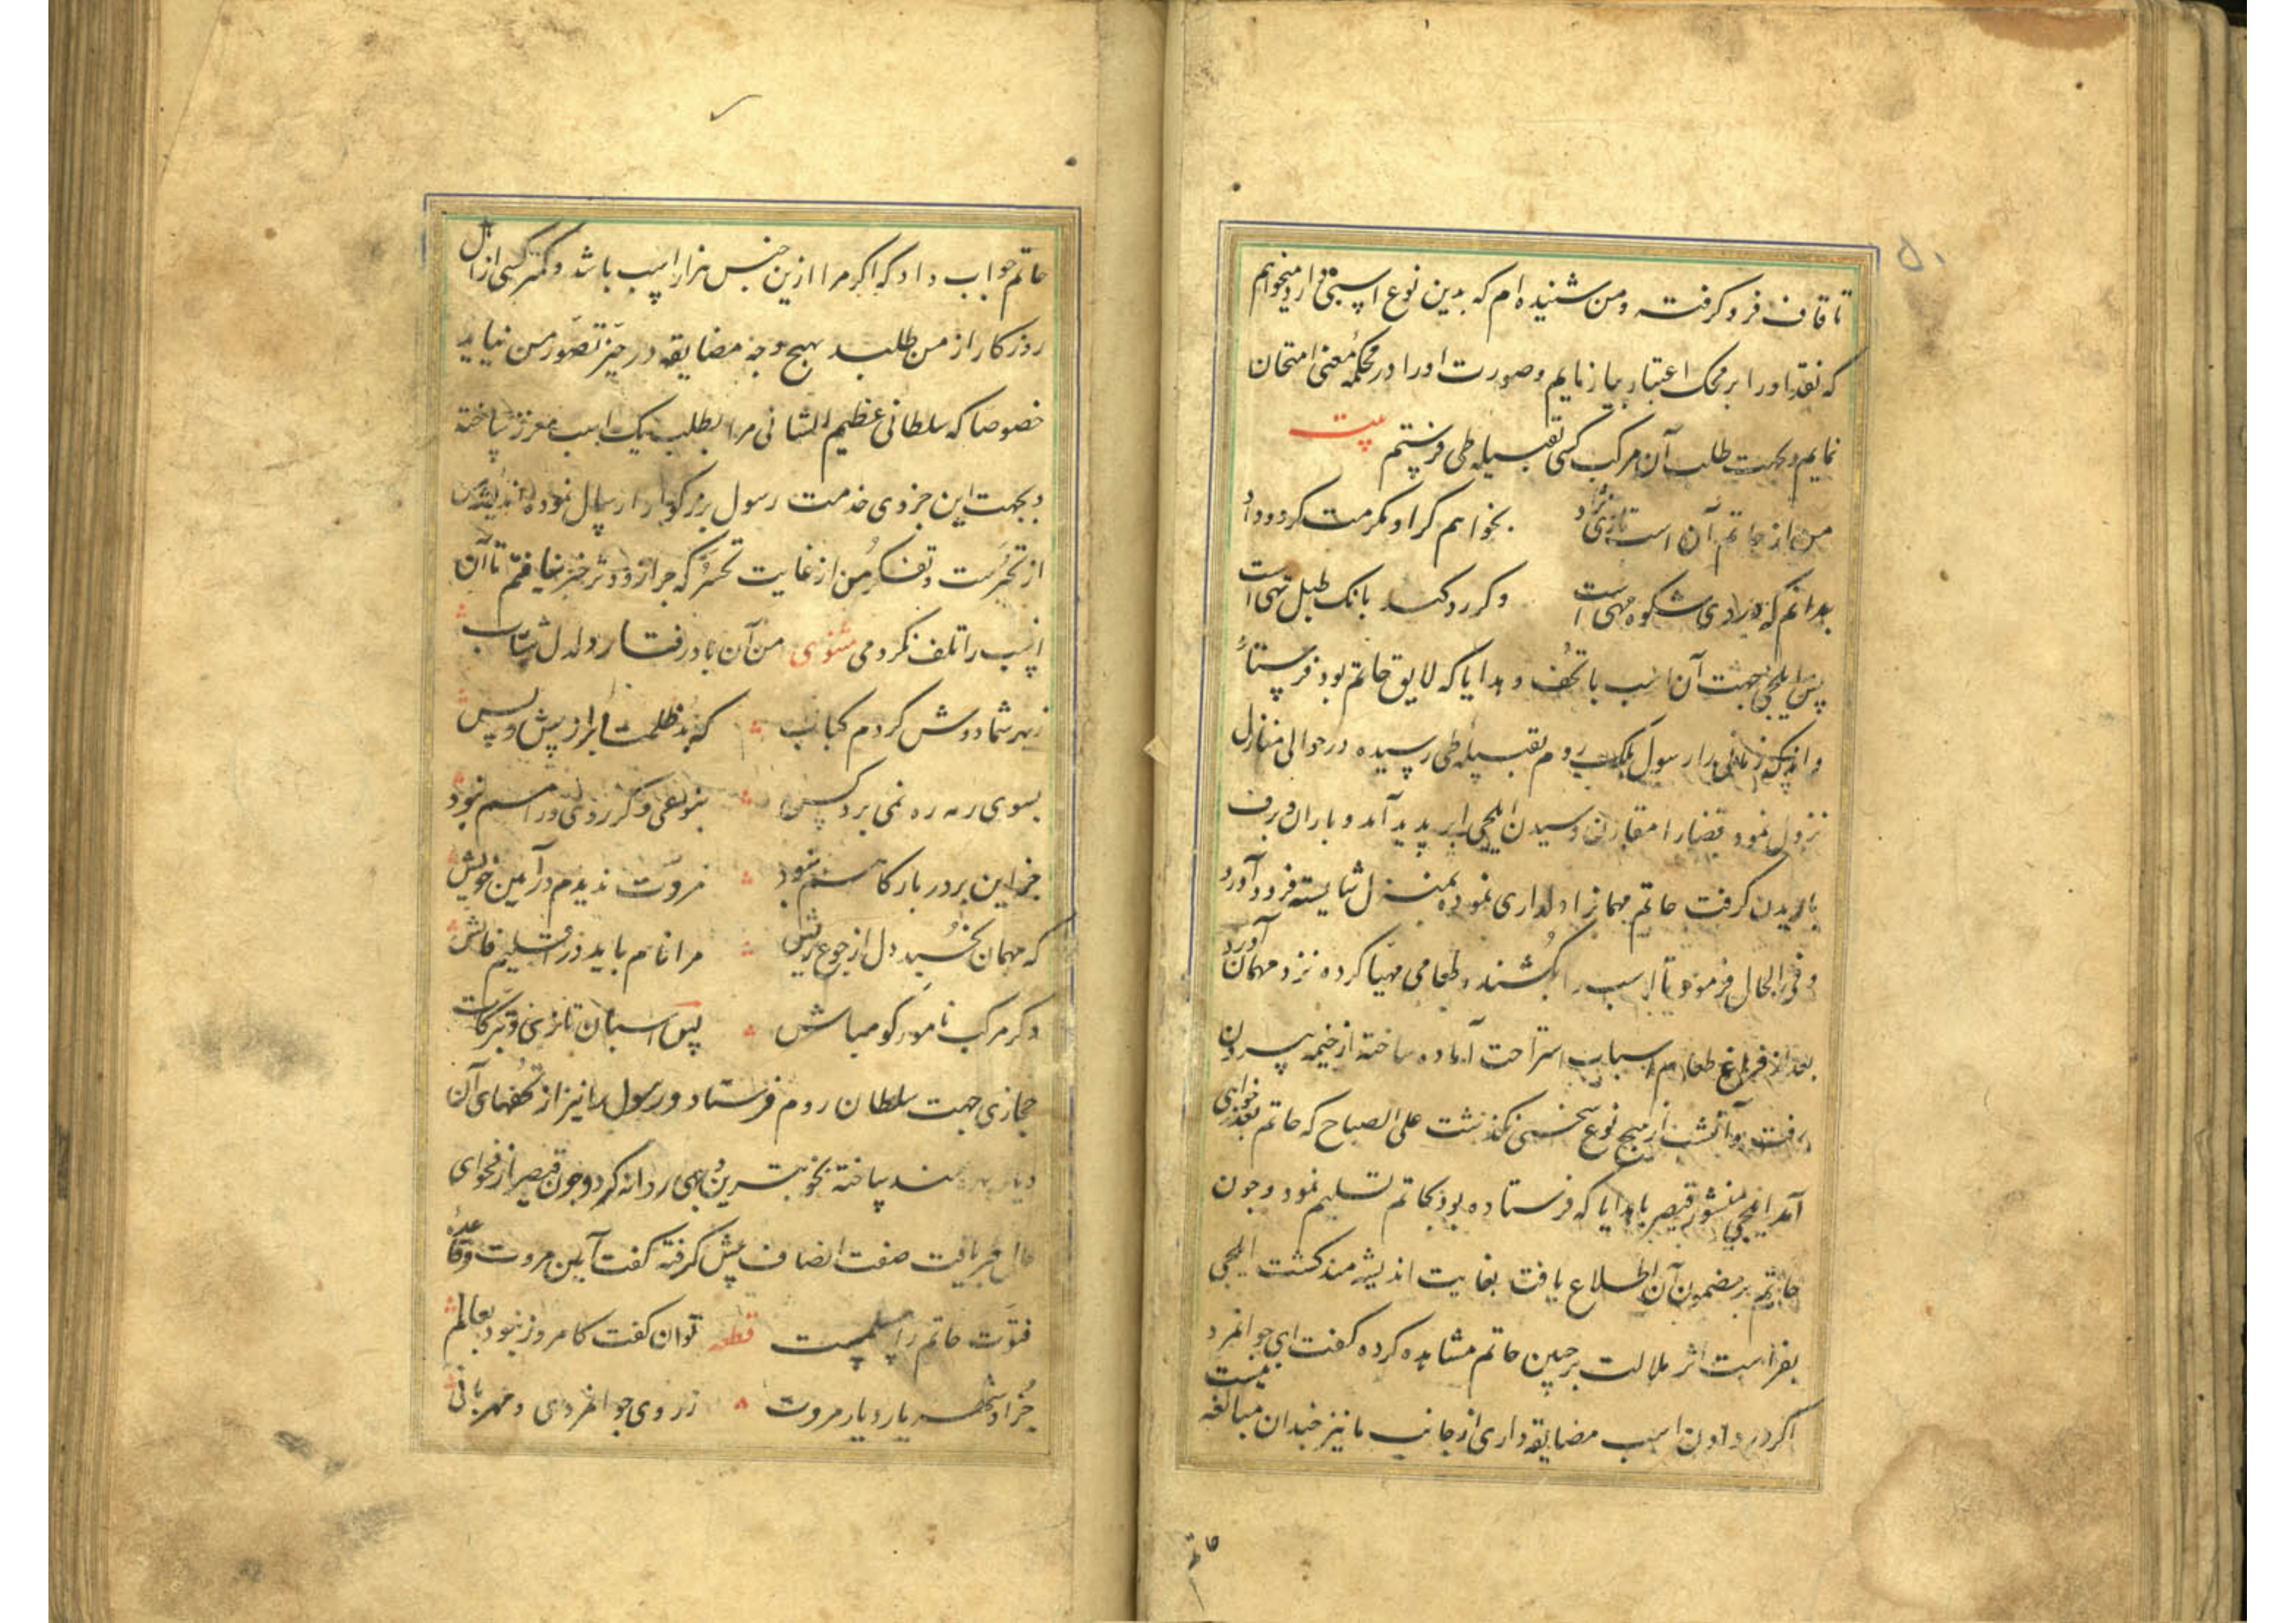 ۵۰
تا قاف فرو کرفته و من شنیده ام که بدین نوع اسبی دارد میخواهم
که نقد او را بر محک اعتبار بیازمایم و صورت او را در محکمهٔ معنی امتحان
نمایم و بجهت طلب آن مرکب کسی بقبیله طی فرستم بیت
من از حاتم آن اسب تازی نژاد بخواهم کر او مکرمت کرد و داد
بدانم که در وی شکوه مهی است و کر رد کند بانک طبل تهی است
پس ایلچی بجهت آن اسب با تحف و هدایا که لایق حاتم بود فرستاد
و اندک زمانی را رسول ملک روم بقبیله طی رسیده در حوالی منازل
نزول نمود قضا را مقارن رسیدن ایلچی ابر پدید آمد و باران و برف
باریدن کرفت حاتم مهمانرا دلداری نموده بمنزل شایسته فرود آورد
و فی الحال فرمود تا اسب را بکشند و طعامی مهیا کرده نزد مهمان آورد
بعد از فراغ طعام اسباب استراحت آماده ساخته از خیمه بیرون
رفت و آنشب از هیچ نوع سخنی نکذشت علی الصباح که حاتم بعذرخواهی
آمد ایلچی منشور قیصر با هدایا که فرستاده بود بحاتم تسلیم نمود و چون
حاتم بر مضمون آن اطلاع یافت بغایت اندیشه مند کشت ایلچی
بفراست اثر ملالت بر جبین حاتم مشاهده کرده کفت ای جوانمرد
اکر در دادن اسب مضایقه داری از جانب ما نیز چندان مبالغه نیست
حاتم
حاتم جواب داد که اکر مرا ازین جنس هزار اسب باشد و کمتر کسی از اهل
روزکار از من طلبد بهیچ وجه مضایقه در حیز تصور من نیاید
خصوصا که سلطانی عظیم الشانی مرا بطلب یک اسب معزز ساخته
و بجهت این جزوی خدمت رسول بزرکوار ارسال نموده اندیشه من
از تحیرست و تفکر من از غایت تحسر که چرا زودتر خبر نیافتم تا آن
اسب را تلف نکردمی مثنوی من آن باد رفتار دلدل شتاب
زبهر شما دوش کردم کباب که بد ظلمت ابر از پیش و پس
بسوی رمه ره نمی برد کس بنوعی دکر روی و راهم نبود
جز این بر در بارکاهم نبود مروت ندیدم در آیین خویش
که مهمان بخسبد دل از جوع ریش مرا نام باید در اقلیم فاش
دکر مرکب نامور کو مباش پس اسبان تازی و تبرکات
حجازی جهت سلطان روم فرستاد و رسول را نیز از تحفهای آن
دیار بهره مند ساخته بخوبترین وجهی روانه کرد و چون قیصر از فحوای
حال خبر یافت صفت انصاف پیش کرفته کفت آیین مروت و قاعده
فتوت حاتم را مسلمست قطعه توان کفت کامروز نبود بعالم
جز او شهریار دیار مروت ز روی جوانمردی و مهربانی